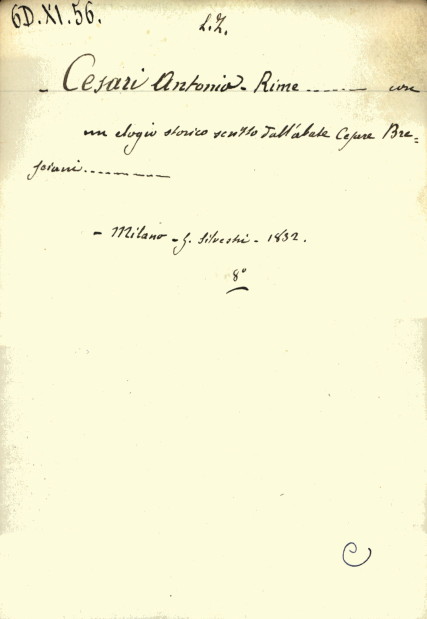 6D.XI.56.
L.Z.
- Cesari Antonio - Rime ....... con
un elogio storico scritto dall'abate Cesare Bre=
sciani...........
- Milano - G. Silvestri - 1832.
8°
C